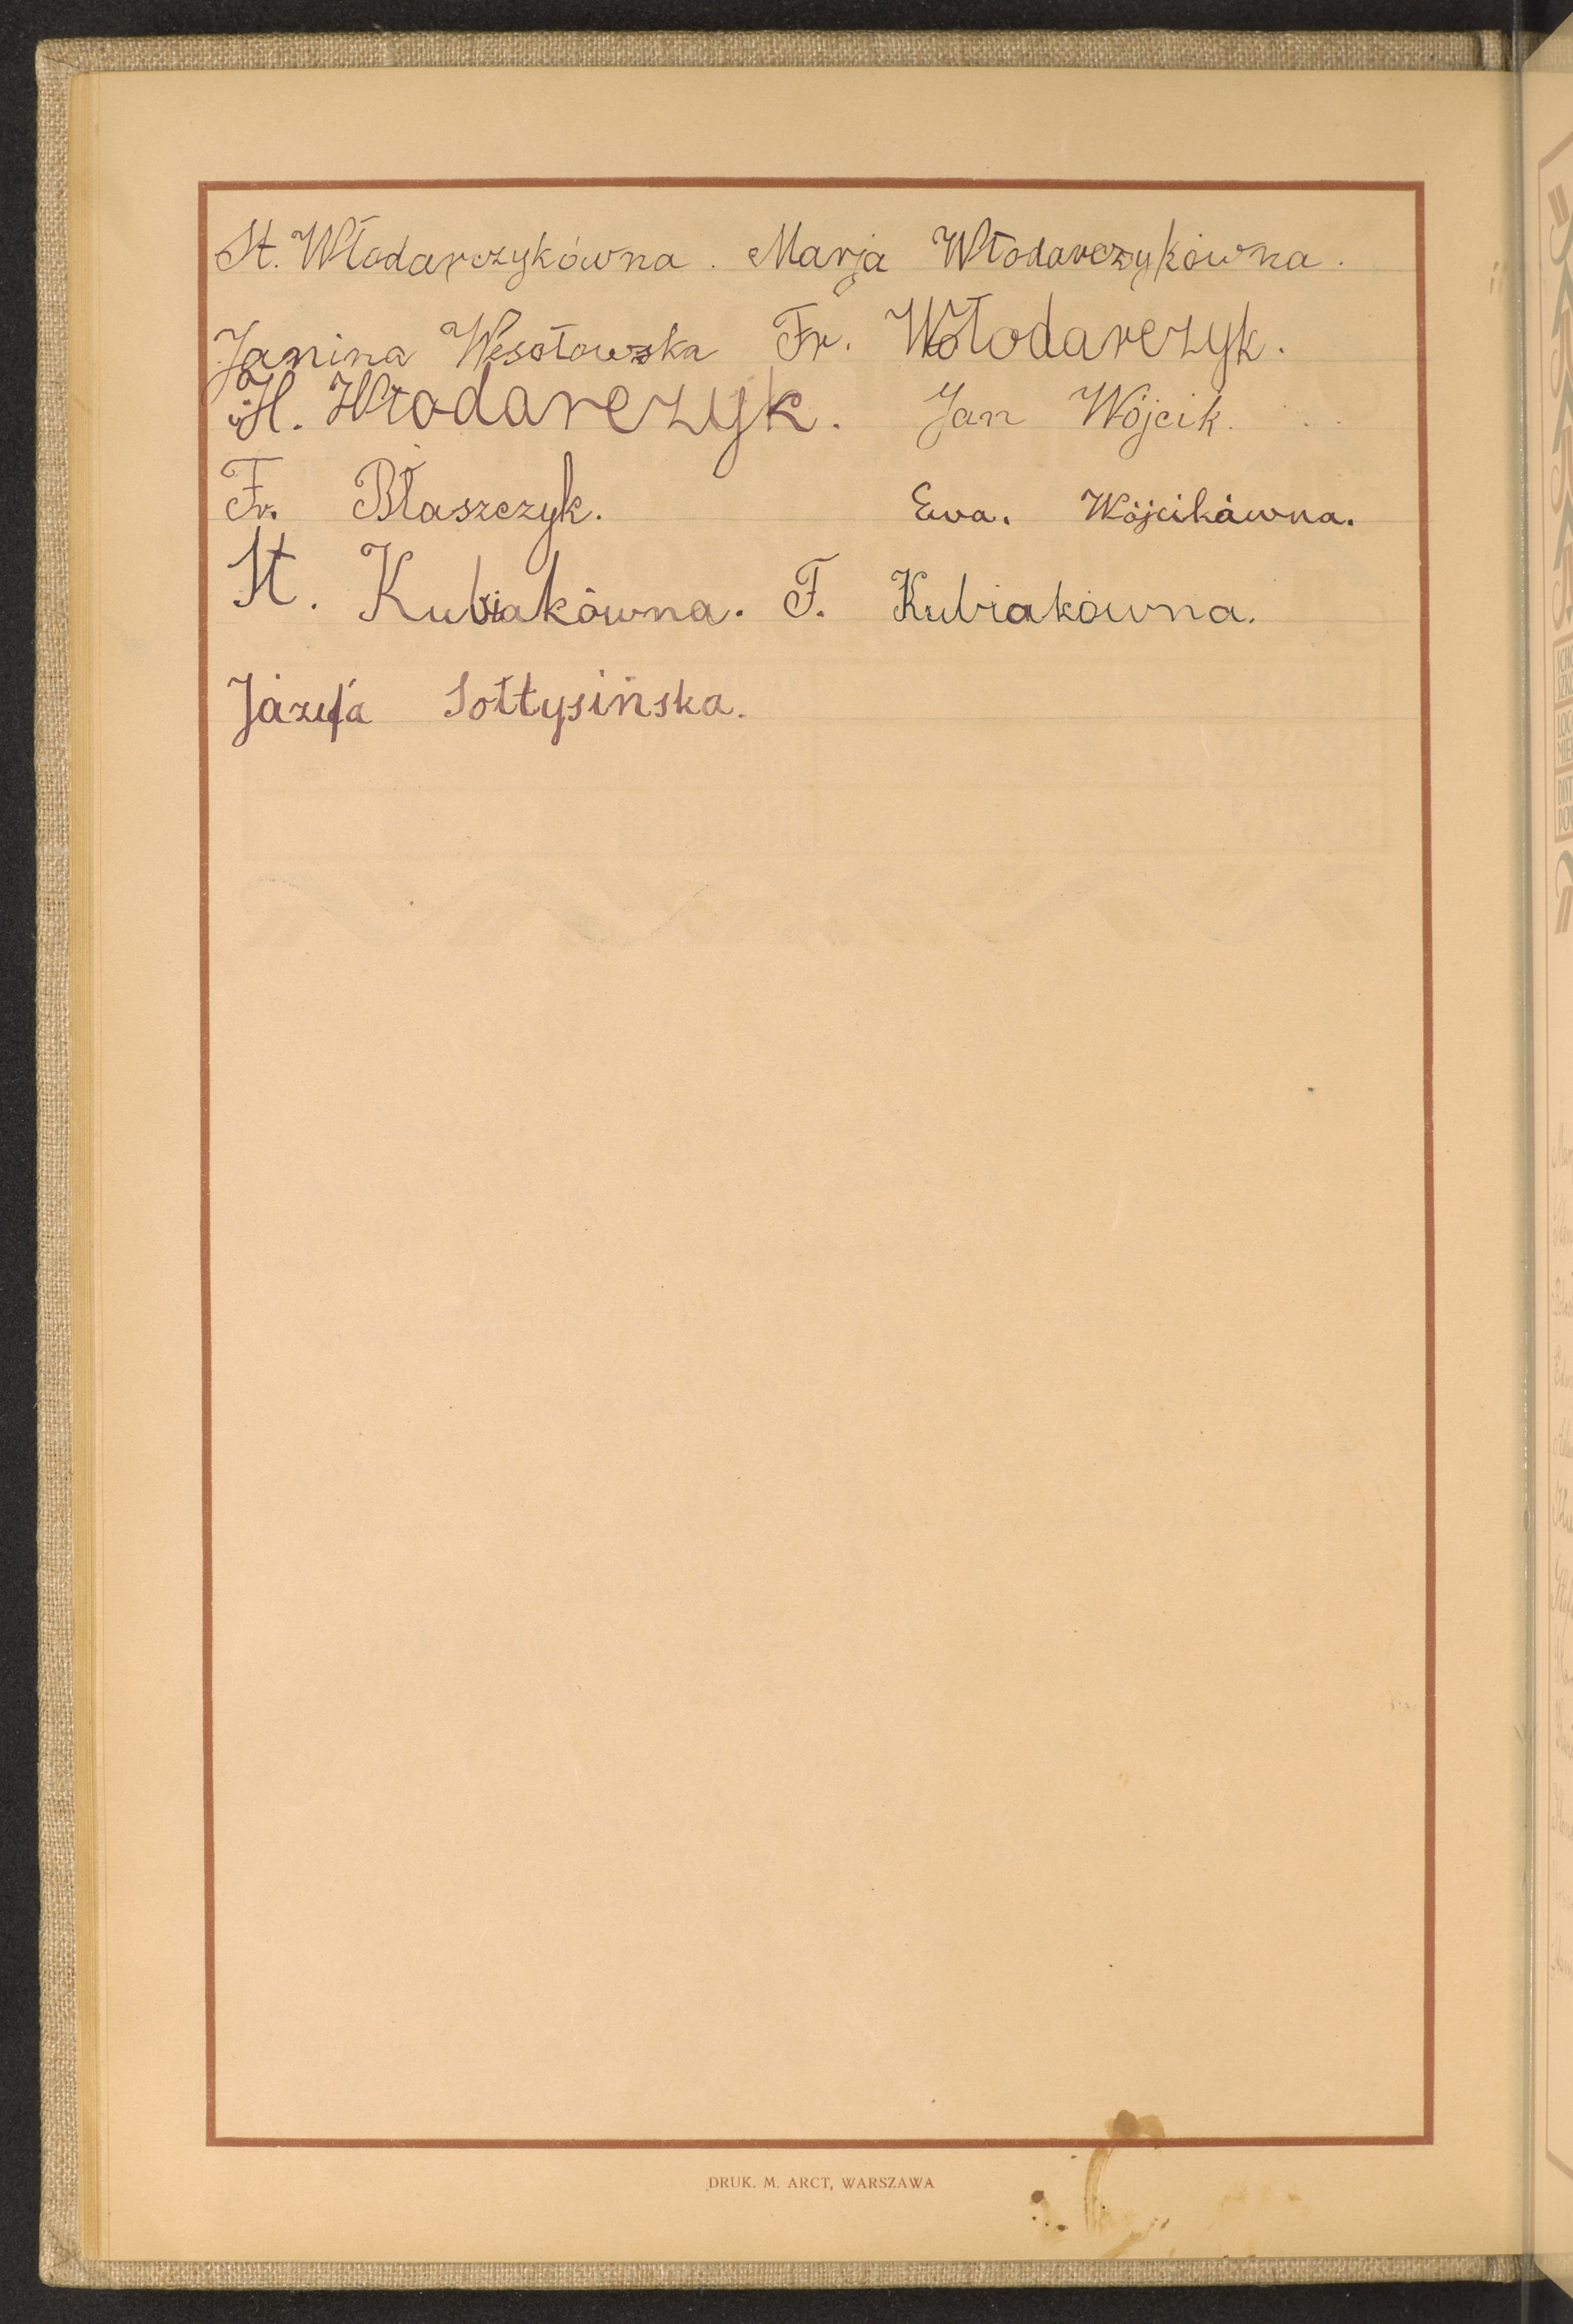 St. Włodarczykówna. Marja Włodarczykówna.
Janina Wesołowska Fr. Włodarczyk.
H. Włodarczyk. Jan Wójcik.
Fr. Błaszczyk. Ewa. Wójcikówna.
St. Kubiakówna. F. Kubiakówna.
Józefa Sołtysińska.
DRUK. M. ARCT, WARSZAWA